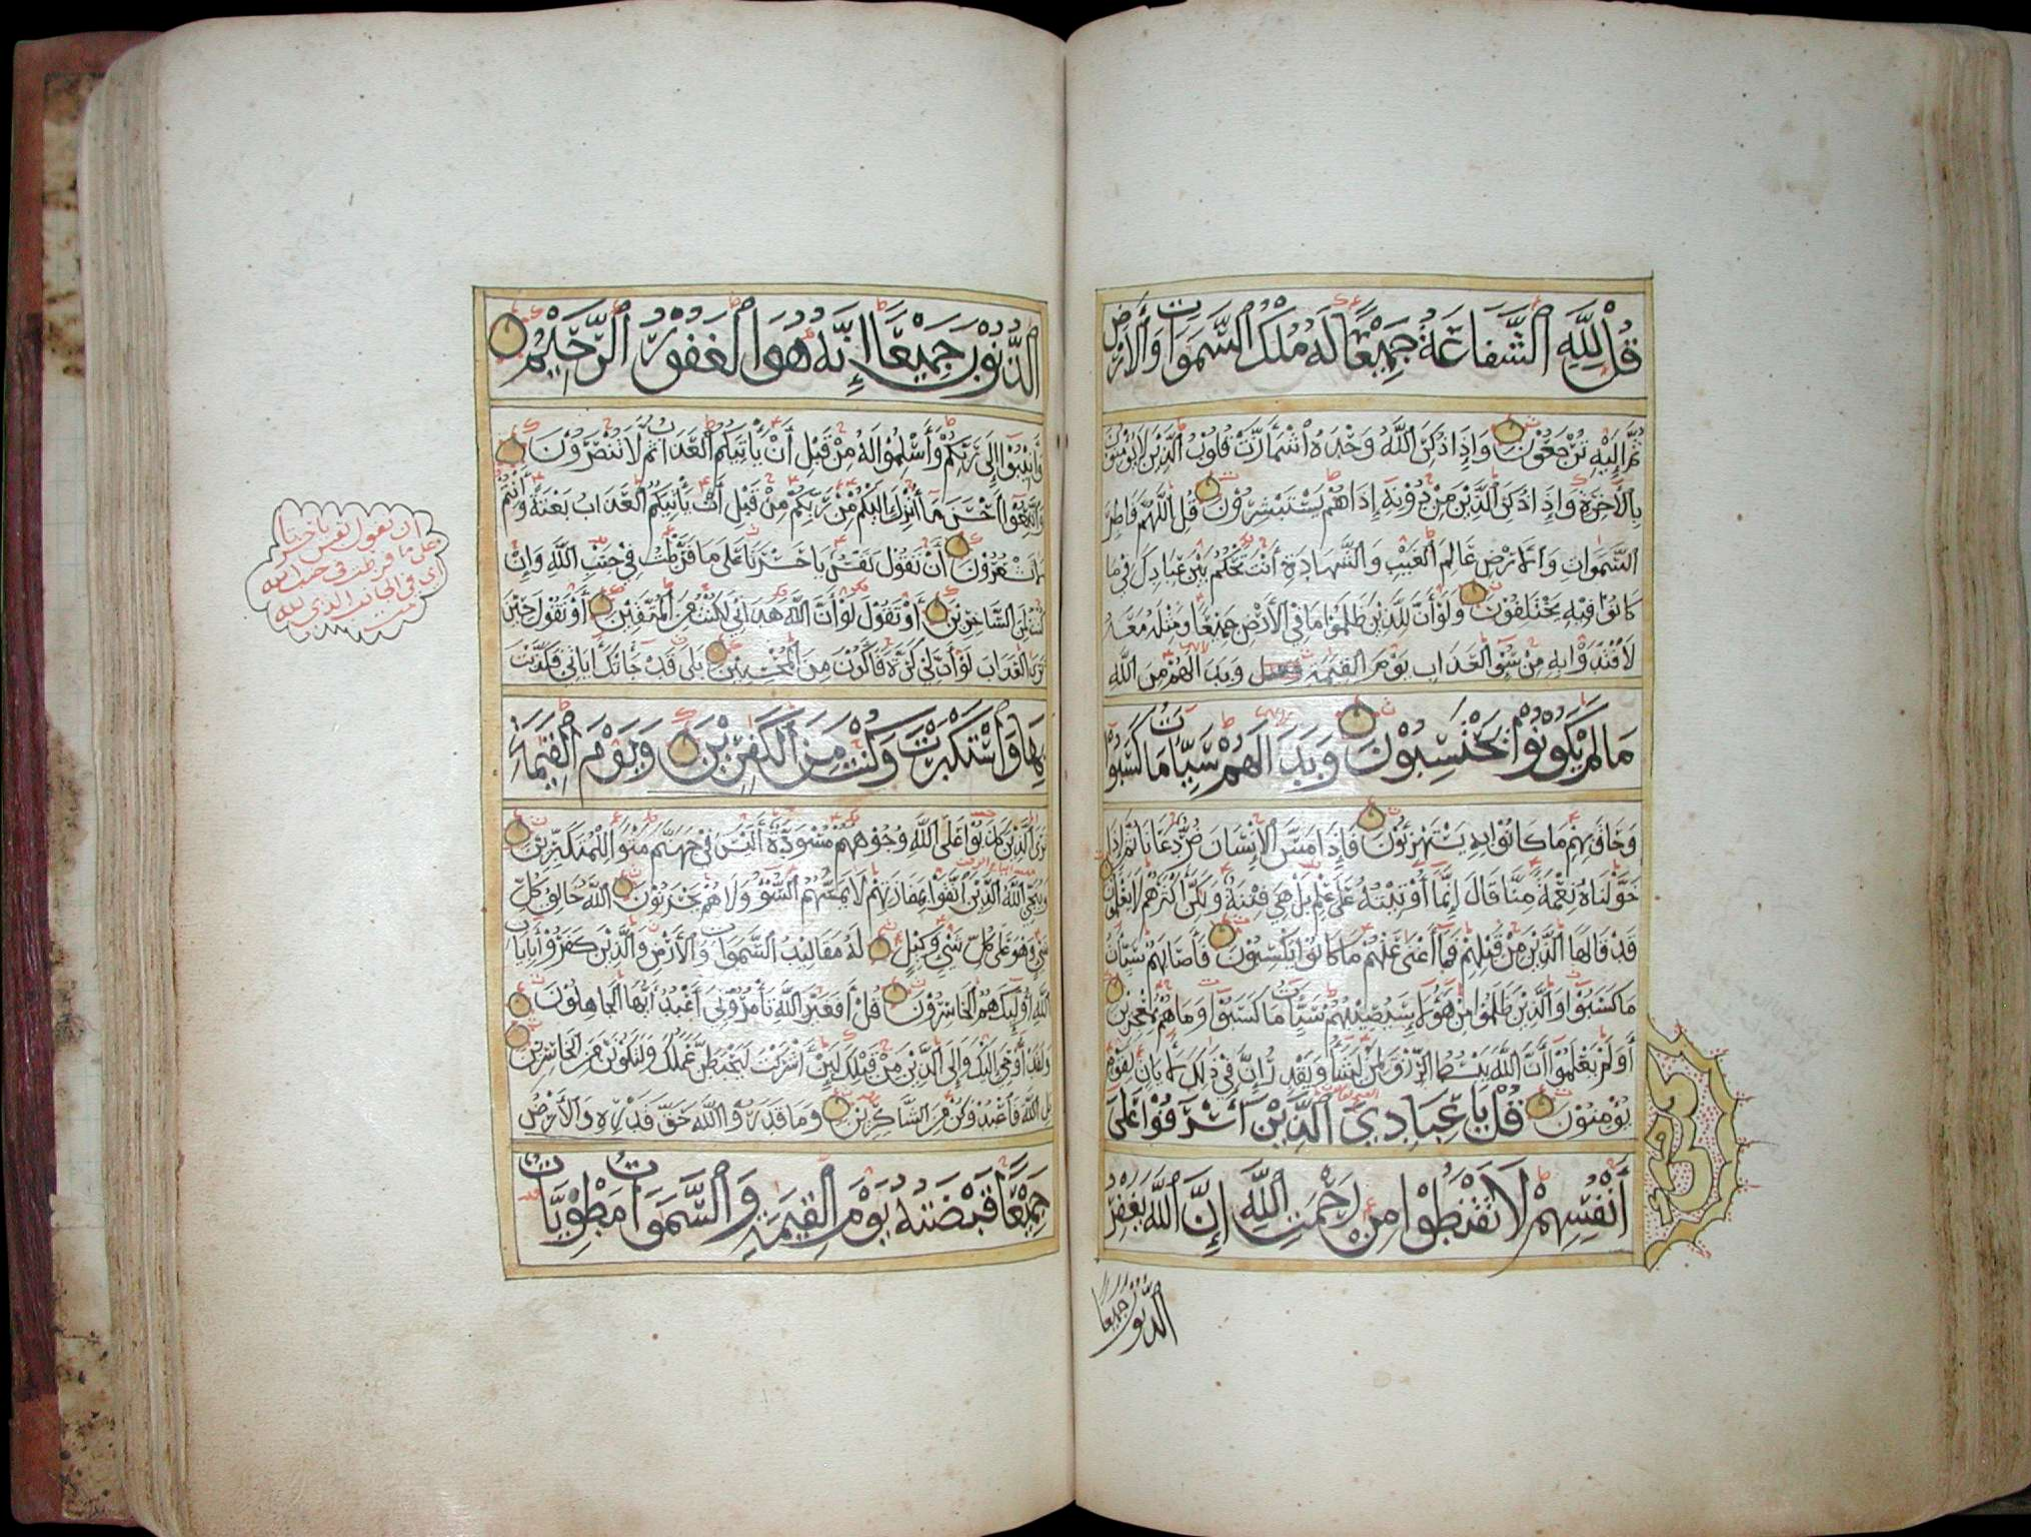 قُلْ لِلَّهِ الشَّفَاعَةُ جَمِيْعًا لَهُ مُلْكُ السَّمَوَاتِ وَالْأَرْضِ
ثُمَّ إِلَيْهِ تُرْجَعُوْنَ وَإِذَا ذُكِرَ اللَّهُ وَحْدَهُ اشْمَأَزَّتْ قُلُوْبُ الَّذِيْنَ لَا يُؤْمِنُوْنَ
بِالْآخِرَةِ وَإِذَا ذُكِرَ الَّذِيْنَ مِنْ دُوْنِهِ إِذَا هُمْ يَسْتَبْشِرُوْنَ قُلِ اللَّهُمَّ فَاطِرَ
السَّمَوَاتِ وَالْأَرْضِ عَالِمَ الْغَيْبِ وَالشَّهَادَةِ أَنْتَ تَحْكُمُ بَيْنَ عِبَادِكَ فِيْ مَا
كَانُوْا فِيْهِ يَخْتَلِفُوْنَ وَلَوْ أَنَّ لِلَّذِيْنَ ظَلَمُوْا مَا فِي الْأَرْضِ جَمِيْعًا وَمِثْلَهُ مَعَهُ
لَافْتَدَوْا بِهِ مِنْ سُوْءِ الْعَذَابِ يَوْمَ الْقِيَمَةِ وَبَدَا لَهُمْ مِنَ اللَّهِ
مَا لَمْ يَكُوْنُوْا يَحْتَسِبُوْنَ وَبَدَا لَهُمْ سَيِّئَاتُ مَا كَسَبُوْا
وَحَاقَ بِهِمْ مَا كَانُوْا بِهِ يَسْتَهْزِئُوْنَ فَإِذَا مَسَّ الْإِنْسَانَ ضُرٌّ دَعَانَا ثُمَّ إِذَا
خَوَّلْنَاهُ نِعْمَةً مِنَّا قَالَ إِنَّمَا أُوْتِيْتُهُ عَلَى عِلْمٍ بَلْ هِيَ فِتْنَةٌ وَلَكِنَّ أَكْثَرَهُمْ لَا يَعْلَمُوْنَ
قَدْ قَالَهَا الَّذِيْنَ مِنْ قَبْلِهِمْ فَمَا أَغْنَى عَنْهُمْ مَا كَانُوْا يَكْسِبُوْنَ فَأَصَابَهُمْ سَيِّئَاتُ
مَا كَسَبُوْا وَالَّذِيْنَ ظَلَمُوْا مِنْ هَؤُلَاءِ سَيُصِيْبُهُمْ سَيِّئَاتُ مَا كَسَبُوْا وَمَا هُمْ بِمُعْجِزِيْنَ
أَوَلَمْ يَعْلَمُوْا أَنَّ اللَّهَ يَبْسُطُ الرِّزْقَ لِمَنْ يَشَاءُ وَيَقْدِرُ إِنَّ فِيْ ذَلِكَ لَآيَاتٍ لِقَوْمٍ
يُؤْمِنُوْنَ قُلْ يَا عِبَادِيَ الَّذِيْنَ أَسْرَفُوْا عَلَى
أَنْفُسِهِمْ لَا تَقْنَطُوْا مِنْ رَحْمَتِ اللَّهِ إِنَّ اللَّهَ يَغْفِرُ
الذُّنُوْبَ جَمِيْعًا
الذُّنُوْبَ جَمِيْعًا إِنَّهُ هُوَ الْغَفُوْرُ الرَّحِيْمُ
وَأَنِيْبُوْا إِلَى رَبِّكُمْ وَأَسْلِمُوْا لَهُ مِنْ قَبْلِ أَنْ يَأْتِيَكُمُ الْعَذَابُ ثُمَّ لَا تُنْصَرُوْنَ
وَاتَّبِعُوْا أَحْسَنَ مَا أُنْزِلَ إِلَيْكُمْ مِنْ رَبِّكُمْ مِنْ قَبْلِ أَنْ يَأْتِيَكُمُ الْعَذَابُ بَغْتَةً وَأَنْتُمْ
لَا تَشْعُرُوْنَ أَنْ تَقُوْلَ نَفْسٌ يَا حَسْرَتَا عَلَى مَا فَرَّطْتُ فِيْ جَنْبِ اللَّهِ وَإِنْ
كُنْتُ لَمِنَ السَّاخِرِيْنَ أَوْ تَقُوْلَ لَوْ أَنَّ اللَّهَ هَدَانِيْ لَكُنْتُ مِنَ الْمُتَّقِيْنَ أَوْ تَقُوْلَ حِيْنَ
تَرَى الْعَذَابَ لَوْ أَنَّ لِيْ كَرَّةً فَأَكُوْنَ مِنَ الْمُحْسِنِيْنَ بَلَى قَدْ جَاءَتْكَ آيَاتِيْ فَكَذَّبْتَ
بِهَا وَاسْتَكْبَرْتَ وَكُنْتَ مِنَ الْكَفِرِيْنَ وَيَوْمَ الْقِيَمَةِ
تَرَى الَّذِيْنَ كَذَبُوْا عَلَى اللَّهِ وُجُوْهُهُمْ مُسْوَدَّةٌ أَلَيْسَ فِيْ جَهَنَّمَ مَثْوًى لِلْمُتَكَبِّرِيْنَ
وَيُنَجِّي اللَّهُ الَّذِيْنَ اتَّقَوْا بِمَفَازَتِهِمْ لَا يَمَسُّهُمُ السُّوْءُ وَلَا هُمْ يَحْزَنُوْنَ اللَّهُ خَالِقُ كُلِّ
شَيْءٍ وَهُوَ عَلَى كُلِّ شَيْءٍ وَكِيْلٌ لَهُ مَقَالِيْدُ السَّمَوَاتِ وَالْأَرْضِ وَالَّذِيْنَ كَفَرُوْا بِآيَاتِ
اللَّهِ أُوْلَئِكَ هُمُ الْخَاسِرُوْنَ قُلْ أَفَغَيْرَ اللَّهِ تَأْمُرُوْنِّيْ أَعْبُدُ أَيُّهَا الْجَاهِلُوْنَ
وَلَقَدْ أُوْحِيَ إِلَيْكَ وَإِلَى الَّذِيْنَ مِنْ قَبْلِكَ لَئِنْ أَشْرَكْتَ لَيَحْبَطَنَّ عَمَلُكَ وَلَتَكُوْنَنَّ مِنَ الْخَاسِرِيْنَ
بَلِ اللَّهَ فَاعْبُدْ وَكُنْ مِنَ الشَّاكِرِيْنَ وَمَا قَدَرُوا اللَّهَ حَقَّ قَدْرِهِ وَالْأَرْضُ
جَمِيْعًا قَبْضَتُهُ يَوْمَ الْقِيَمَةِ وَالسَّمَوَاتُ مَطْوِيَّاتٌ
ان تقول نفس يا حسرتا
على ما فرطت في جنب الله
اى في الجانب الذي لله